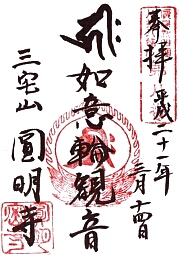 奉拝 平成二十一年
三月十四日
如意輪観音
三宅山
圓明寺